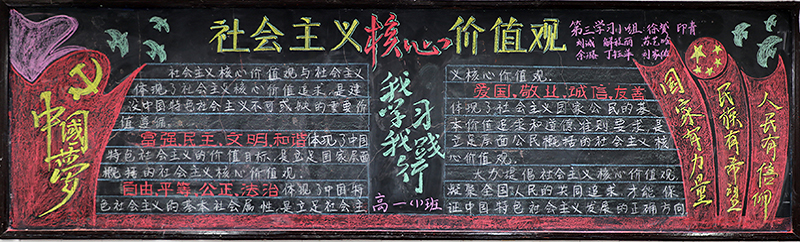 社会主义核心价值观
第三学习小组 徐赞 印青
中國梦
社会主义核心价值观与社会主义
体现了社会主义核心价值追求,是建
设中国特色社会主义不可或缺的重要价
值遵循。
富强民主,文明,和谐体现了中国
特色社会主义的价值目标,是立足国家层面
概括的社会主义核心价值观
自由,平等,公正,法治体现了中国特
色社会主义的基本社会属性,是立足社会主
我学习
我践行
高一(1)班
义核心价值观.
爱国,敬业,诚信,友善
体现了社会主义国家公民的基
本价值追求和道德准则要求,是
立足层面公民概括的社会主义核
心价值观.
大力提倡社会主义核心价值观.
凝聚全国人民的共同追求,才能保
证中国特色社会主义发展的正确方向
国家有力量
民族有希望
人民有信仰